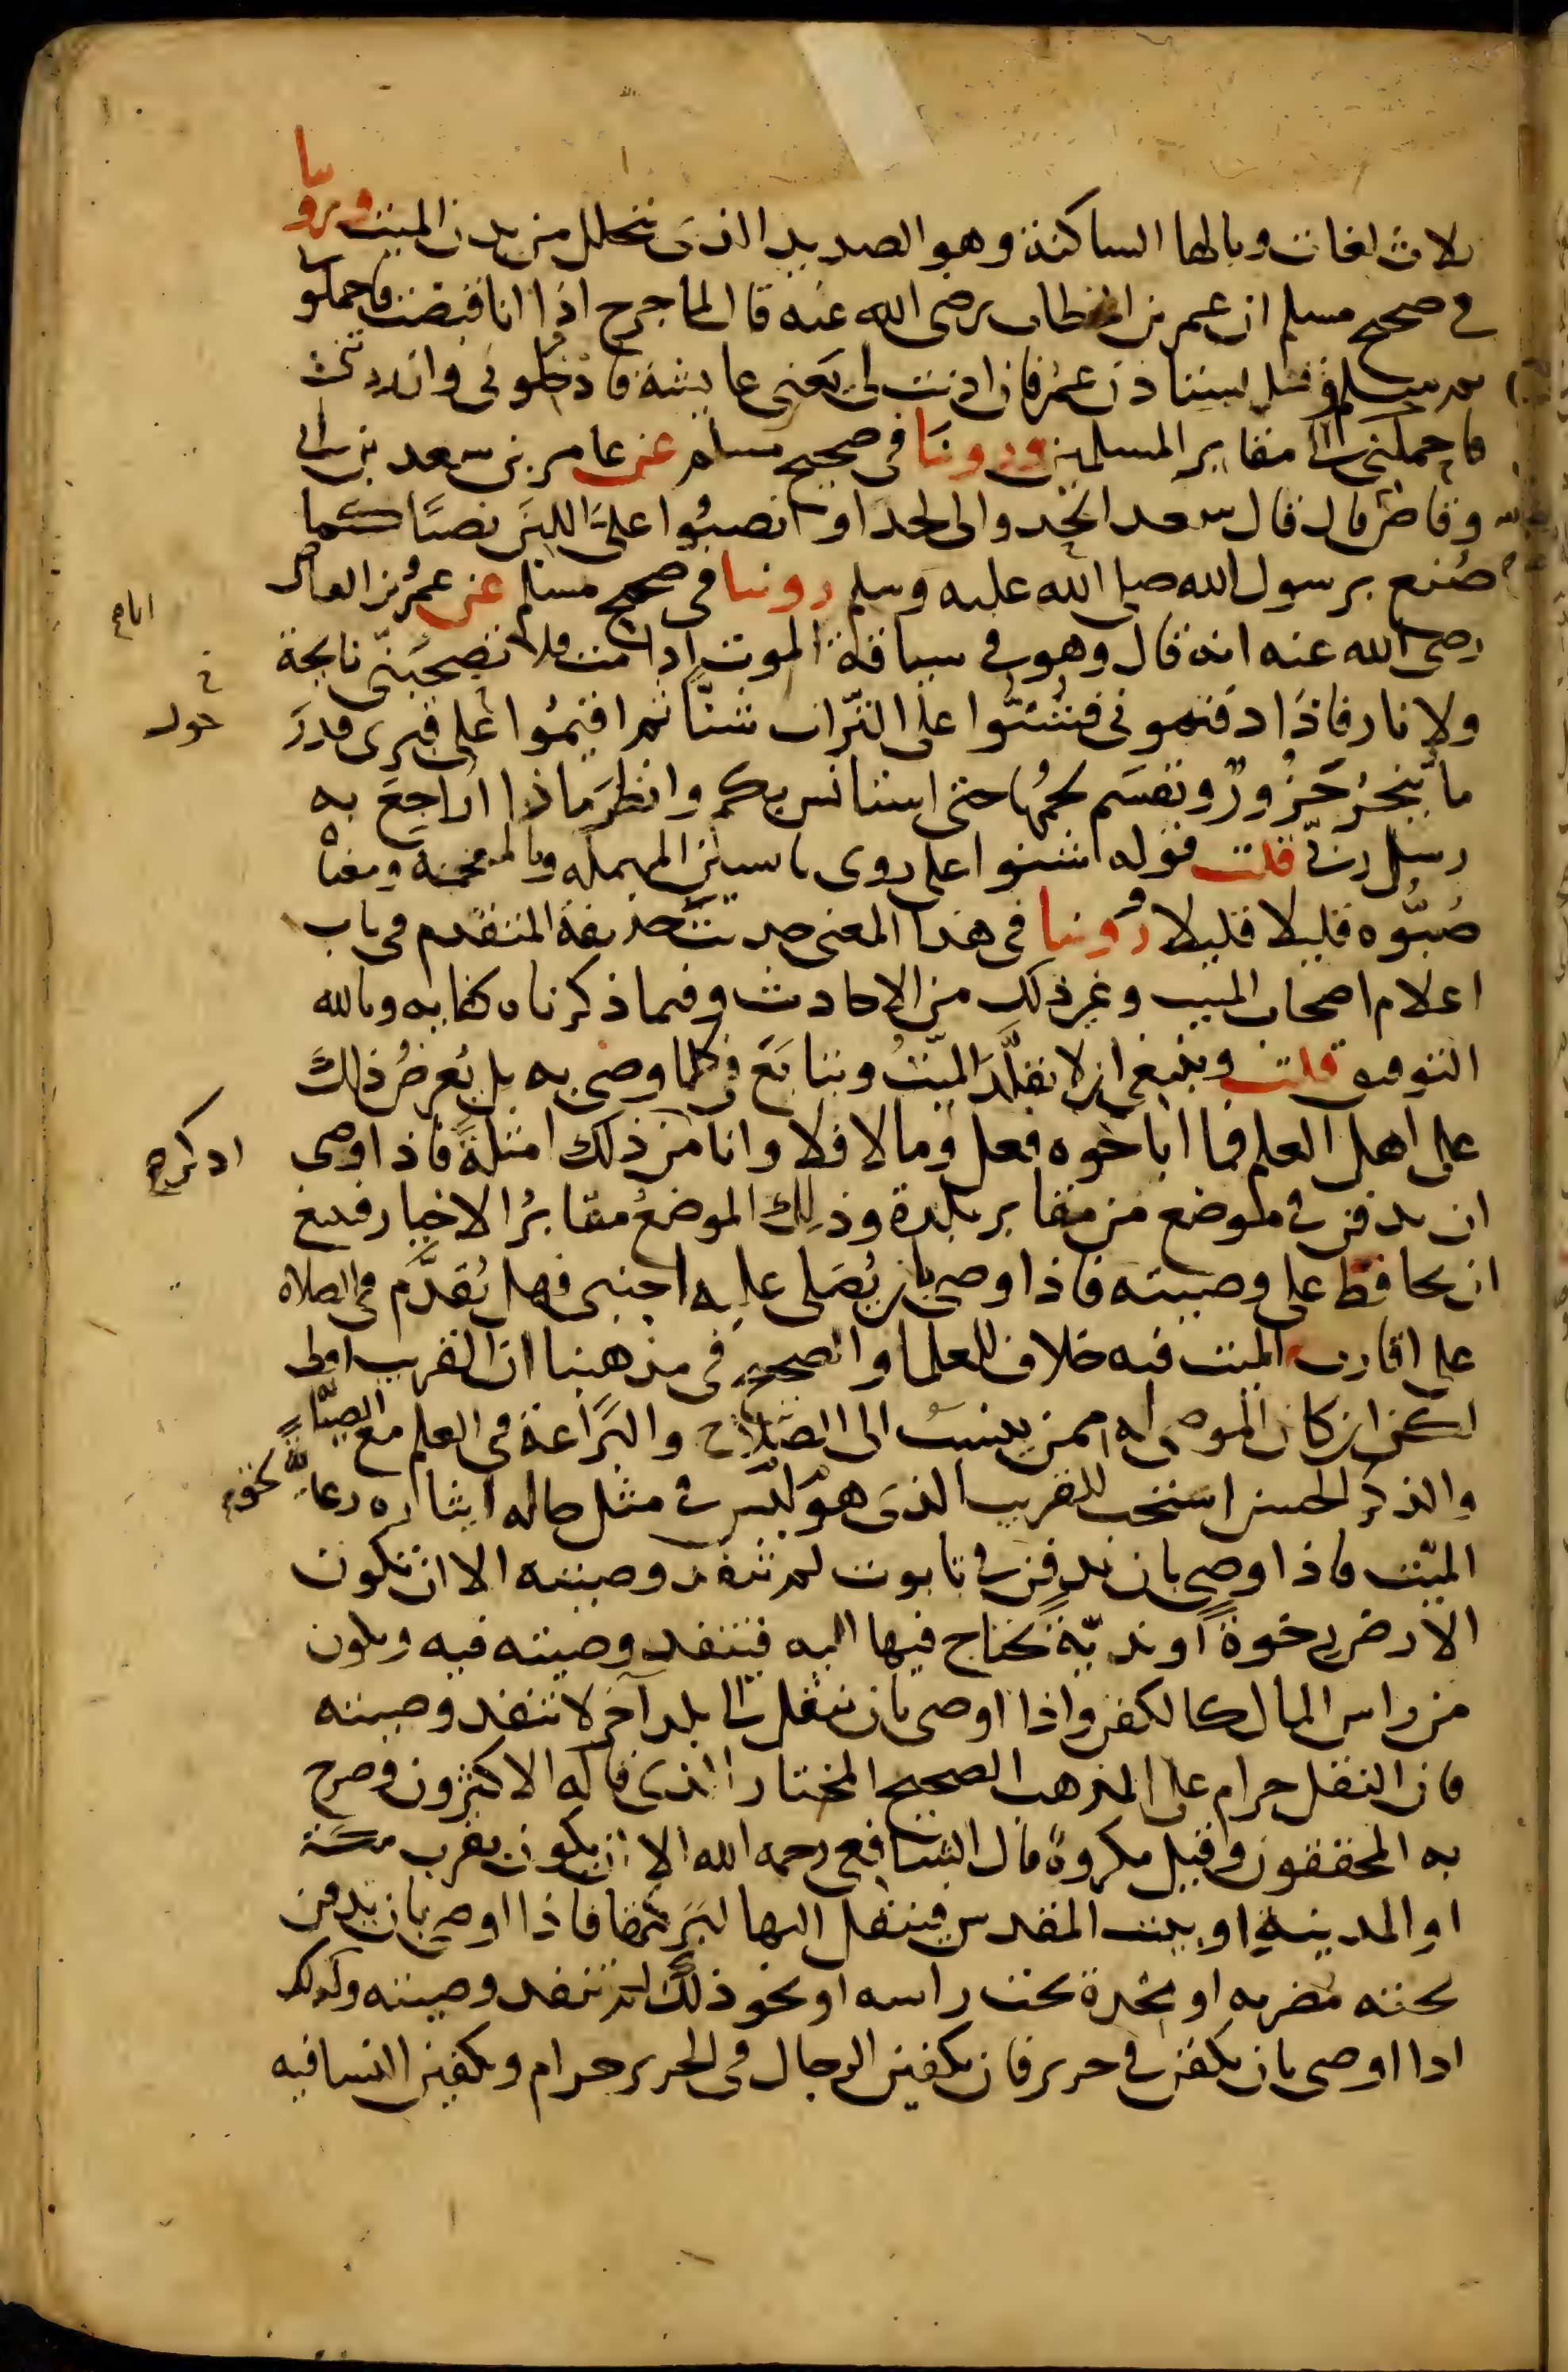 لاث لغات وبالها الساكنة وهو الصديد الذى يتحلل من بدن الميت وروينا
فى صحيح مسلم ان عمر بن الخطاب رضى الله عنه قال لما جرح اذا انا قبضت فاحملونى
ثم سلم وقل يستاذن عمر فان اذنت لى يعنى عايشة فادخلونى وان ردتنى
فاحملنى الى مقابر المسلمين وروينا فى صحيح مسلم عن عامر بن سعد بن ابى
وقاص قال قال سعد الحدوا لى لحدا وانصبوا على اللبن نصبا كما
صُنع برسول الله صلى الله عليه وسلم روينا فى صحيح مسلم عن عمرو بن العاص
رضى الله عنه انه قال وهو فى سياقة الموت اذا انا مت فلا تصحبنى نايحة
ولا نار فاذا دفنتمونى فشنّوا على التراب شنّا ثم اقيموا حول قبرى قدر
ما يُنحر جزورٌ ويقسم لحمُها حتى استانس بكم وانظر ماذا اراجع به
رسل ربى قلت قوله شنوا على روى بالسين المهملة وبالمعجمة ومعناه
صُبُّوه قليلا قليلا وروينا فى هذا المعنى حديث حذيفة المتقدم فى باب
اعلام اصحاب الميت وغير ذلك من الاحاديث وفيما ذكرناه كفاية وبالله
التوفيق قلت وينبغى ان لا يقلَّد الميّتُ ويتابَع فى كلما وصى به بل يُعرضُ ذلك
على اهل العلم فما اباحوه فعل وما لا فلا وانا اذكر من ذلك امثلةً فاذا اوصى
ان يدفن فى موضع من مقابر بلدة وذلك الموضعُ مقابرُ الاخيار فينبغى
ان يحافظ على وصيته فاذا اوصى بان يُصلى عليه اجنبى فهل يُقدَّم فى الصلاه
على اقارب الميت فيه خلاف للعلما والصحيح فى مذهبنا ان القريب اولى
لكن ان كان الموصى له ممن ينسب الى الصلاح والبَراعة فى العلم مع الصيانة
والذكر الحسن استحب للقريب الذى هو ليس فى مثل حاله ايثاره رعايةً لحق
الميّت فاذا اوصى بان يدفن فى تابوت لم تنفذ وصيته الا ان تكون
الارض رخوةً او نديّة يحتاج فيها اليه فتنفذ وصيته فيه ويكون
من راس المال كالكفن واذا اوصى بان ينقل الى بلد آخر لا تنفذ وصيته
فان النقل حرام على المذهب الصحيح المختار الذى قاله الاكثرون وصرح
به المحققون وقيل مكروهٌ قال الشافعى رحمه الله الا ان يكون بقرب مكة
او المدينة او بيت المقدس فينقل اليها لبركتها فاذا اوصى بان يدفن
تحته مضربه او مخدة تحت راسه او نحو ذلك لم تنفذ وصيته وكذلك
اذا اوصى بان يكفن فى حرير فان تكفين الرجال فى الحرير حرام وتكفين النسا فيه